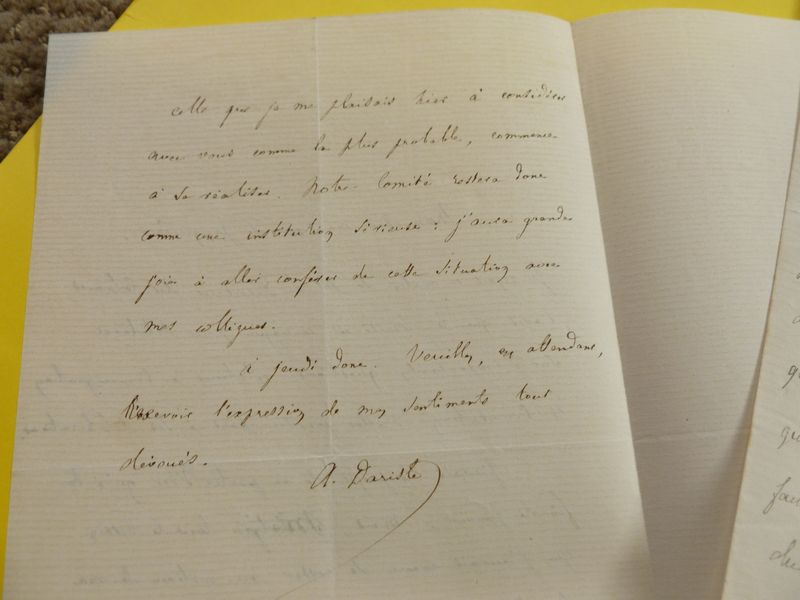 celle que je me plaisais hier à considérer
avec vous comme la plus probable, commence
à se réaliser. Notre Comité restera donc
comme une institution sérieuse : j'aurai grande
joie à aller conférer de cette situation avec
mes collègues.
à jeudi donc. Veuillez, en attendant,
recevoir l'expression de mes sentiments tout
dévoués.
A. Dariste